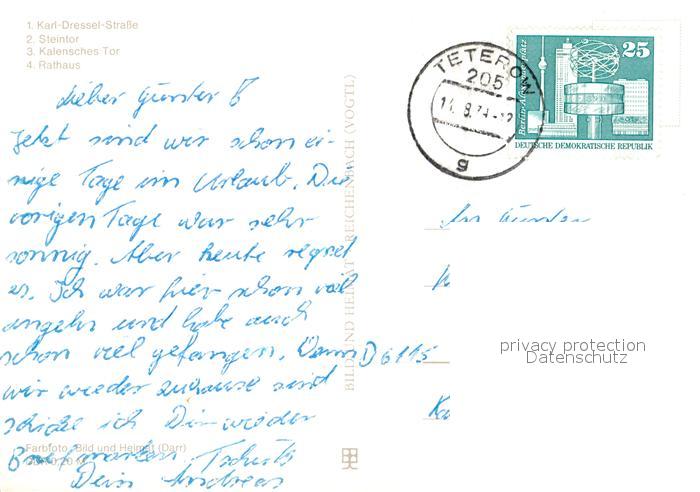 1. Karl-Dressel-Straße
2. Steintor
3. Kalensches Tor
4. Rathaus
Lieber Günter
Jetzt sind wir schon ei-
nige Tage im Urlaub. Die
vorigen Tage war sehr
sonnig. Aber heute regnet
es. Ich war hier schon viel
angeln und habe auch
schon viel gefangen. Wenn
wir wieder zuhause sind
schicke ich Dir wieder
Briefmarken. Tschüß
Dein Andreas
Farbfoto: Bild und Heimat (Darr)
BILD UND HEIMAT REICHENBACH (VOGTL)
D 6115
TETEROW
205
14.8.74-12
g
25
Berlin-Alexanderplatz
DEUTSCHE DEMOKRATISCHE REPUBLIK
An Günter
privacy protection
Datenschutz